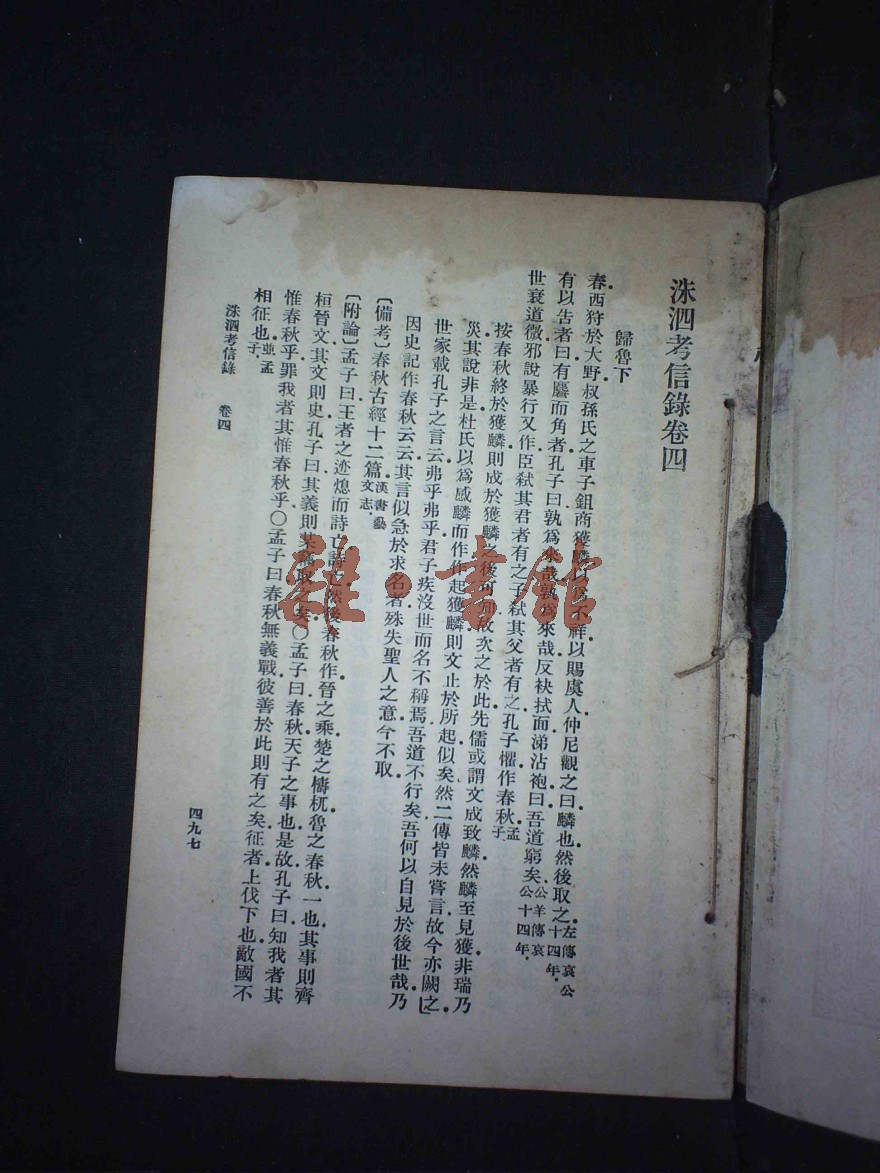 洙泗考信錄卷四
歸魯下
春.西狩於大野.叔孫氏之車子鉏商獲麟.以爲不祥.以賜虞人.仲尼觀之曰.麟也.然後取之.左傳哀公十四年.
有以告者曰.有麕而角者.孔子曰.孰爲來哉.孰爲來哉.反袂拭面.涕沾袍曰.吾道窮矣.公羊傳哀公十四年.
世衰道微.邪說暴行又作.臣弒其君者有之.子弒其父者有之.孔子懼.作春秋.孟子.
按春秋終於獲麟.則成於獲麟之後可知.故次之於此.先儒或謂文成致麟.然麟至見獲.非瑞乃
災.其說非是.杜氏以爲感麟而作.作起獲麟.則文止於所起.似矣.然二傳皆未嘗言.故今亦闕之.
世家載孔子之言云.弗乎弗乎.君子疾沒世而名不稱焉.吾道不行矣.吾何以自見於後世哉.乃
因史記作春秋云云.其言似急於求名者.殊失聖人之意.今不取.
〔備考〕春秋古經十二篇.漢書藝文志.
〔附論〕孟子曰.王者之迹熄而詩亡.詩亡然後春秋作.晉之乘.楚之檮杌.魯之春秋.一也.其事則齊
桓晉文.其文則史.孔子曰.其義則某竊取之矣.〇孟子曰.春秋天子之事也.是故孔子曰.知我者其
惟春秋乎.罪我者其惟春秋乎.〇孟子曰.春秋無義戰.彼善於此則有之矣.征者上伐下也.敵國不
相征也.並孟子.
洙泗考信錄 卷四
四九七
雜·書館